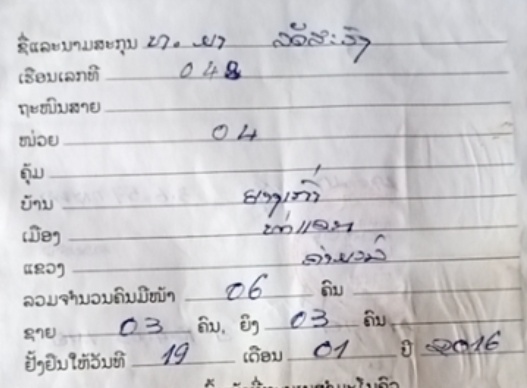 ຊື່ແລະນາມສະກຸນ ທ. ຍາ
ເຮືອນເລກທີ 048
ຖະໜົນສາຍ
ໜ່ວຍ 04
ຄຸ້ມ
ບ້ານ ຍາງເກົ່າ
ເມືອງ ທ່າແລະ
ແຂວງ
ລວມຈຳນວນຄົນມີໜ້າ 06 ຄົນ
ຊາຍ 03 ຄົນ, ຍິງ 03 ຄົນ
ຢັ້ງຢືນໃຫ້ວັນທີ 19 ເດືອນ 01 ປີ 2016